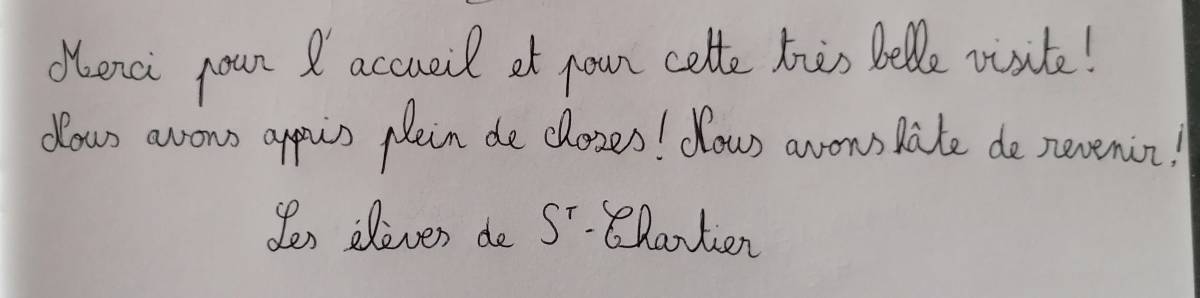 Merci pour l'accueil et pour cette très belle visite !
Nous avons appris plein de choses ! Nous avons hâte de revenir !
Les élèves de St-Chartier